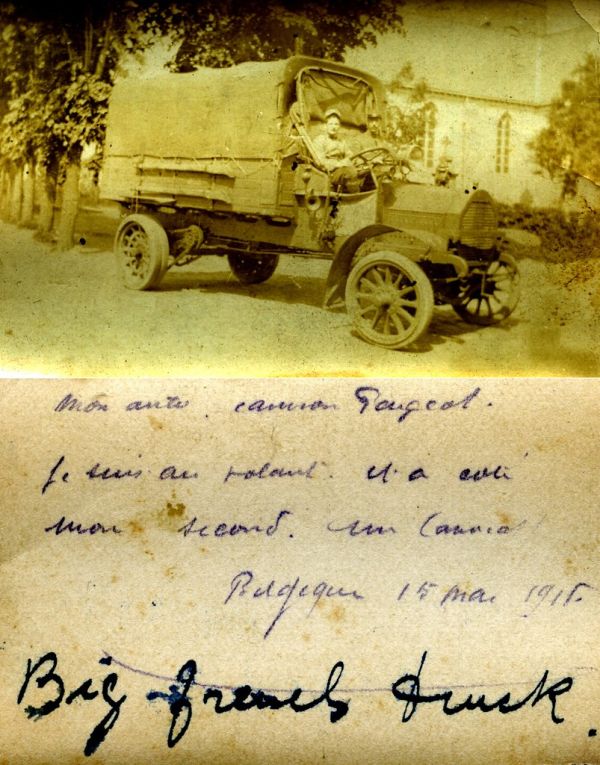 Mon auto. camion Peugeot.
Je suis au volant. et a coté
mon second. un
Belgique 15 mai 1915.
Big french truck.